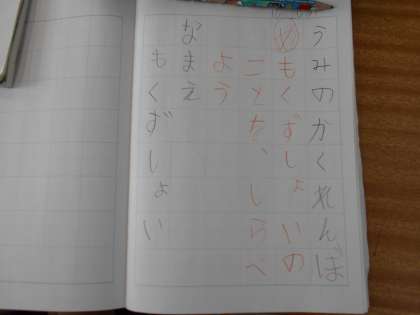 うみのかくれんぼ
めもくずしょいの
ことを、しらべ
よう
なまえ
もくずしょい